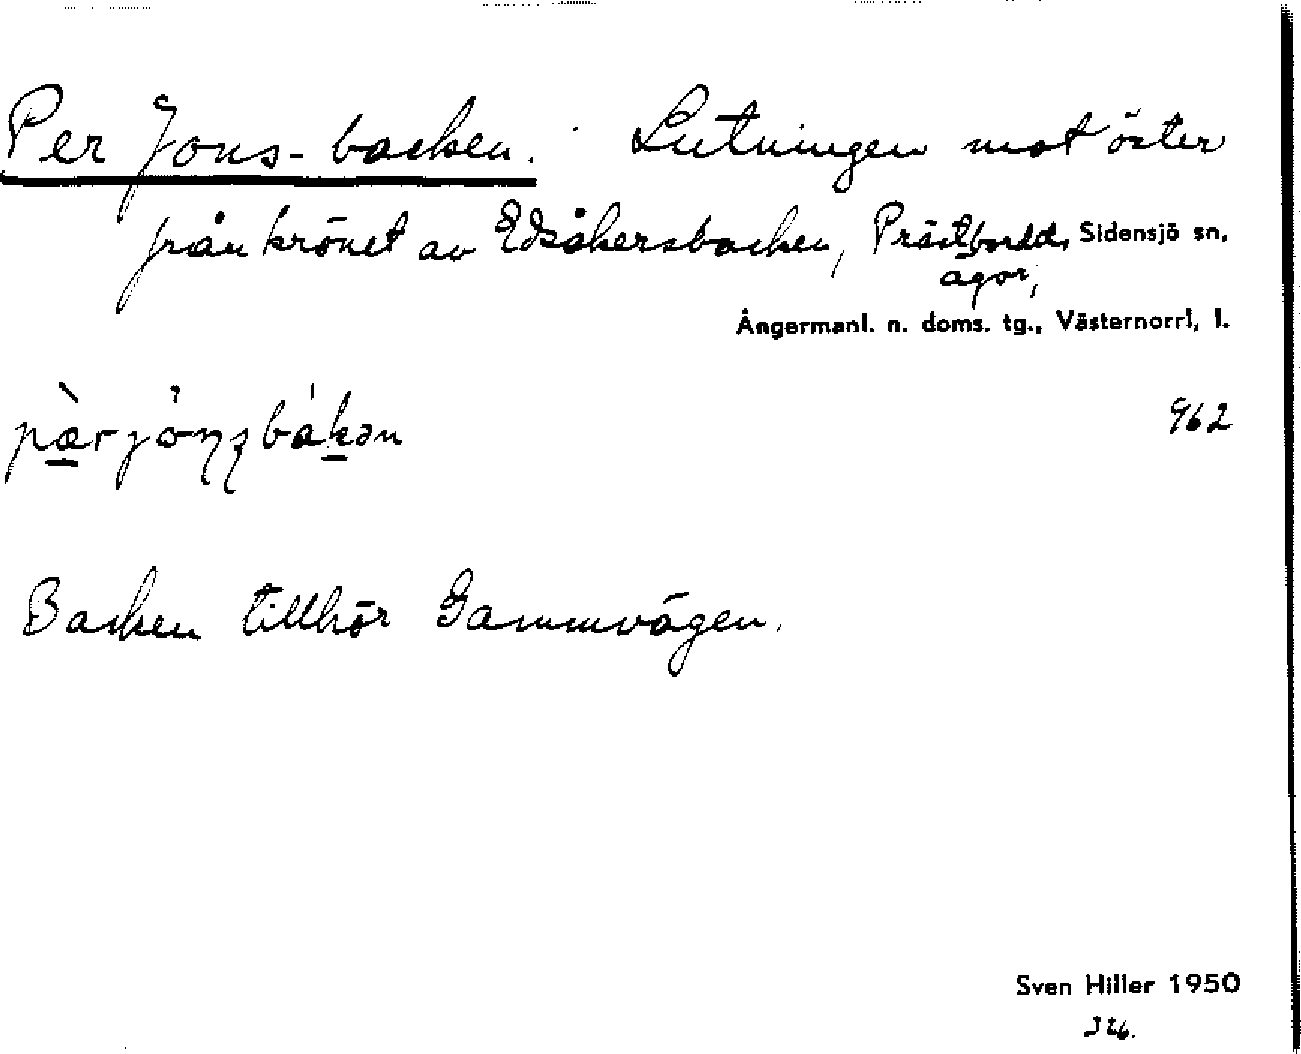 Per Jons-backen. Lutningen mot öster
från krönet av Edsåkersbacken, Prästbordd, Sidensjö sn,
agor,
Ångermanl. n. doms. tg., Västernorrl, l.
962
Backen tillhör Gammvägen.
Sven Hiller 1950